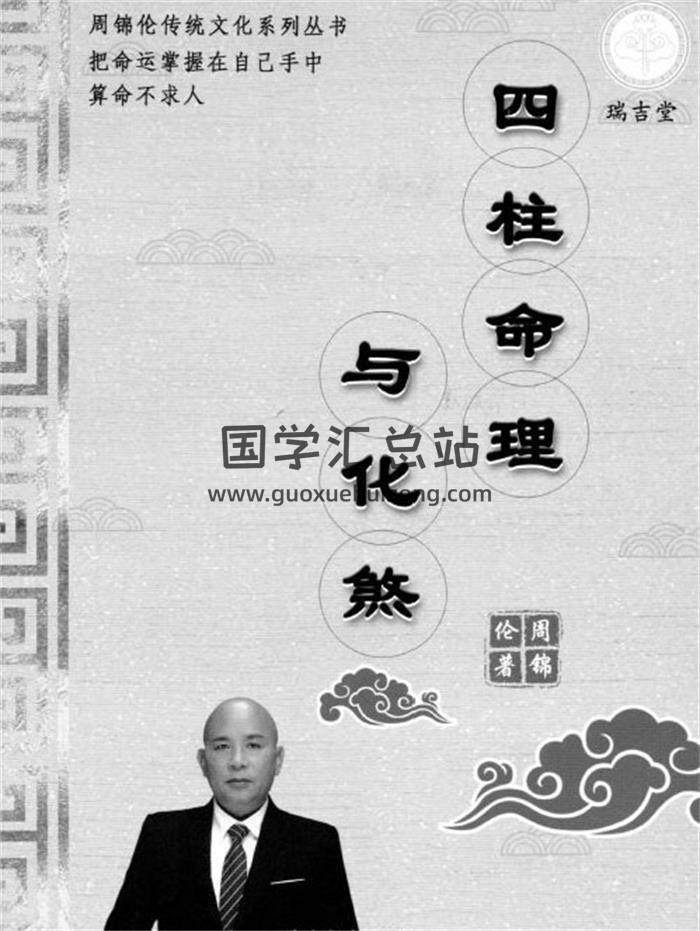 周锦伦传统文化系列丛书
把命运掌握在自己手中
算命不求人
瑞吉堂
四柱命理
与化煞
国学汇总站
www.guoxuehuizong.com
周锦伦著